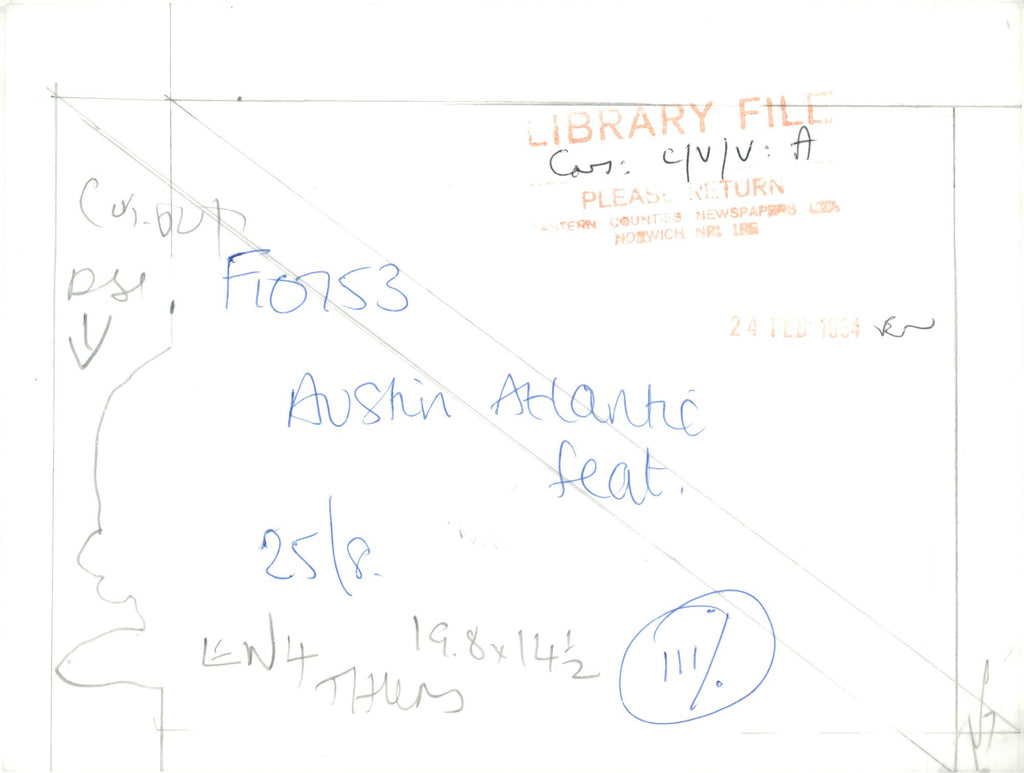 LIBRARY FILE
Cars: C/V/V: A
PLEASE RETURN
EASTERN COUNTIES NEWSPAPERS LTD
NORWICH NR1 1RE
Cut-out
F10753
24 FEB 1994
Austin Atlantic
feat.
25/8.
EN4 19.8 x 14 1/2
THURS
111%